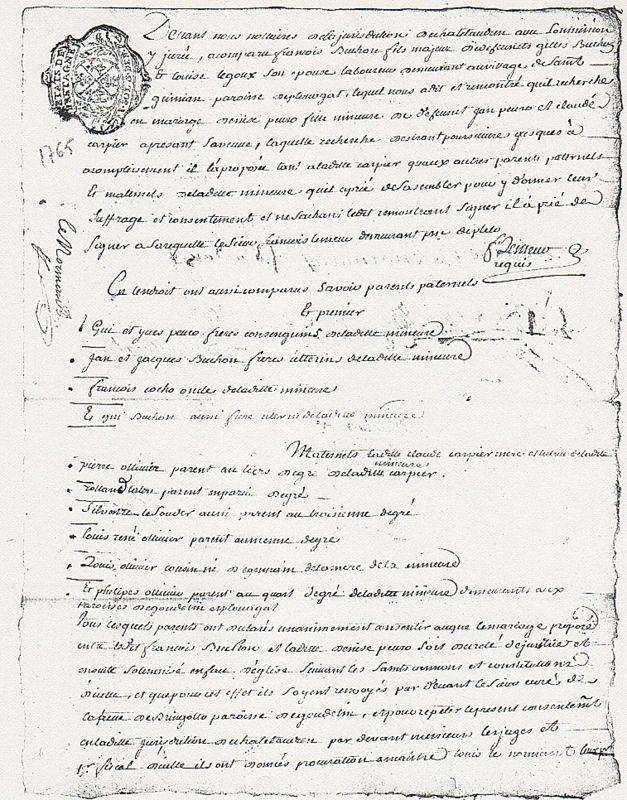 Devant nous nottaires de la jurisdiction de chatelaudren aux Commission
y jurée, a comparu françois Buchon fils majeur de deffuncts gilles Buchon
Et louise legoux son epouse laboureur demeurant au village de saint
quinian paroisse de plouagat, lequel nous a dit et remontré quil recherche
en mariage denise peuro fille mineure de deffunt jan peuro et claude
carpier apresant sa veuve, laquelle recherche desirant poursuivre jusques à
acomplissement il l'a proposée tant a laditte carpier quaux autres parents paternels
Et maternels de laditte mineure quil a prié de sasembler pour y donner leur
suffrage et consentement et ne sachant ledit remontrant signer il a prié de
signer a sa requette le sieur françois lemeur demeurant pre de plelo
f. Lemeur
requis
1765
le Normand
En lendroit ont aussi comparus savoir parents paternels
Et premier
Gui et yves peuro freres consenguins de laditte mineure
Jan et jacques Buchon freres uterins de laditte mineure
françois cocho oncle de laditte mineure
Et gui Buchon aussi frere uterin de laditte mineure
Maternels laditte claude carpier mere et tutrice de laditte
mineure
pierre ollivier parent au tiers degré de laditte carpier.
rolland parent en pareil degré
Silvestre le Souder aussi parent au troisieme degré
louis rené ollivier parent au mesme degré
Louis ollivier cousin né de germain de la mere de la mineure
Et philipes ollivier parent au quart degré de laditte mineure demeurants aux
paroisses de goudelin et plouagat
Tous lesquels parents ont declarés unanimement consentir a ce que le mariage proposé
entre ledit françois Buchon et laditte denise peuro soit decreté de justice et
ensuitte solemnisé en face d'eglise suivant les saints cannons et constitutions
dicelle, et que pour cet effet ils soyent renvoyés par devant le sieur curé de
la treve de Bringollo paroisse de goudelin, et pour repeter le present consentement
en laditte jurisdiction de chatelaudren par devant messieurs les juges et
pr fiscal dicelle ils ont donnés procuration a maitre louis le normant leur pr